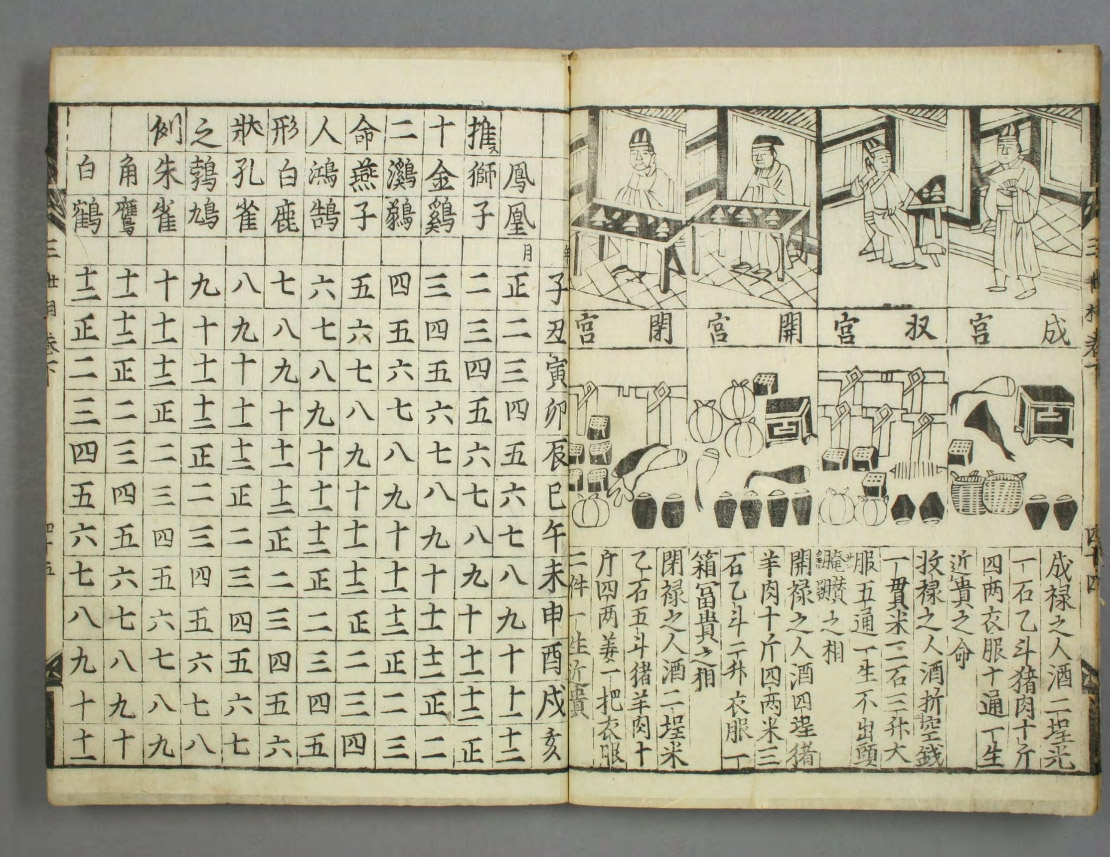 成宮
収宮
開宮
閉宮
成禄之人酒二埕米
一石乙斗猪肉十斤
四两衣服十通一生
近貴之命
收禄之人酒折空銭
一貫米二石三升大
服五通一生不出頭
之相
開禄之人酒四埕猪
羊肉十斤四两米三
石乙斗二升衣服一
箱冨貴之相
閉禄之人酒二埕米
乙石五斗猪羊肉十
斤四两姜一把衣服
二件一生近貴
推十二命人形狀之例
年月
子丑寅卯辰巳午未申酉戌亥
鳳凰 正二三四五六七八九十十一十二
獅子 二三四五六七八九十十一十二正
金鷄 三四五六七八九十十一十二正二
鸂鶒 四五六七八九十十一十二正二三
燕子 五六七八九十十一十二正二三四
鴻鵠 六七八九十十一十二正二三四五
白鹿 七八九十十一十二正二三四五六
孔雀 八九十十一十二正二三四五六七
鵓鳩 九十十一十二正二三四五六七八
朱雀 十十一十二正二三四五六七八九
角鷹 十一十二正二三四五六七八九十
白鶴 十二正二三四五六七八九十十一
三世相卷下
四十五